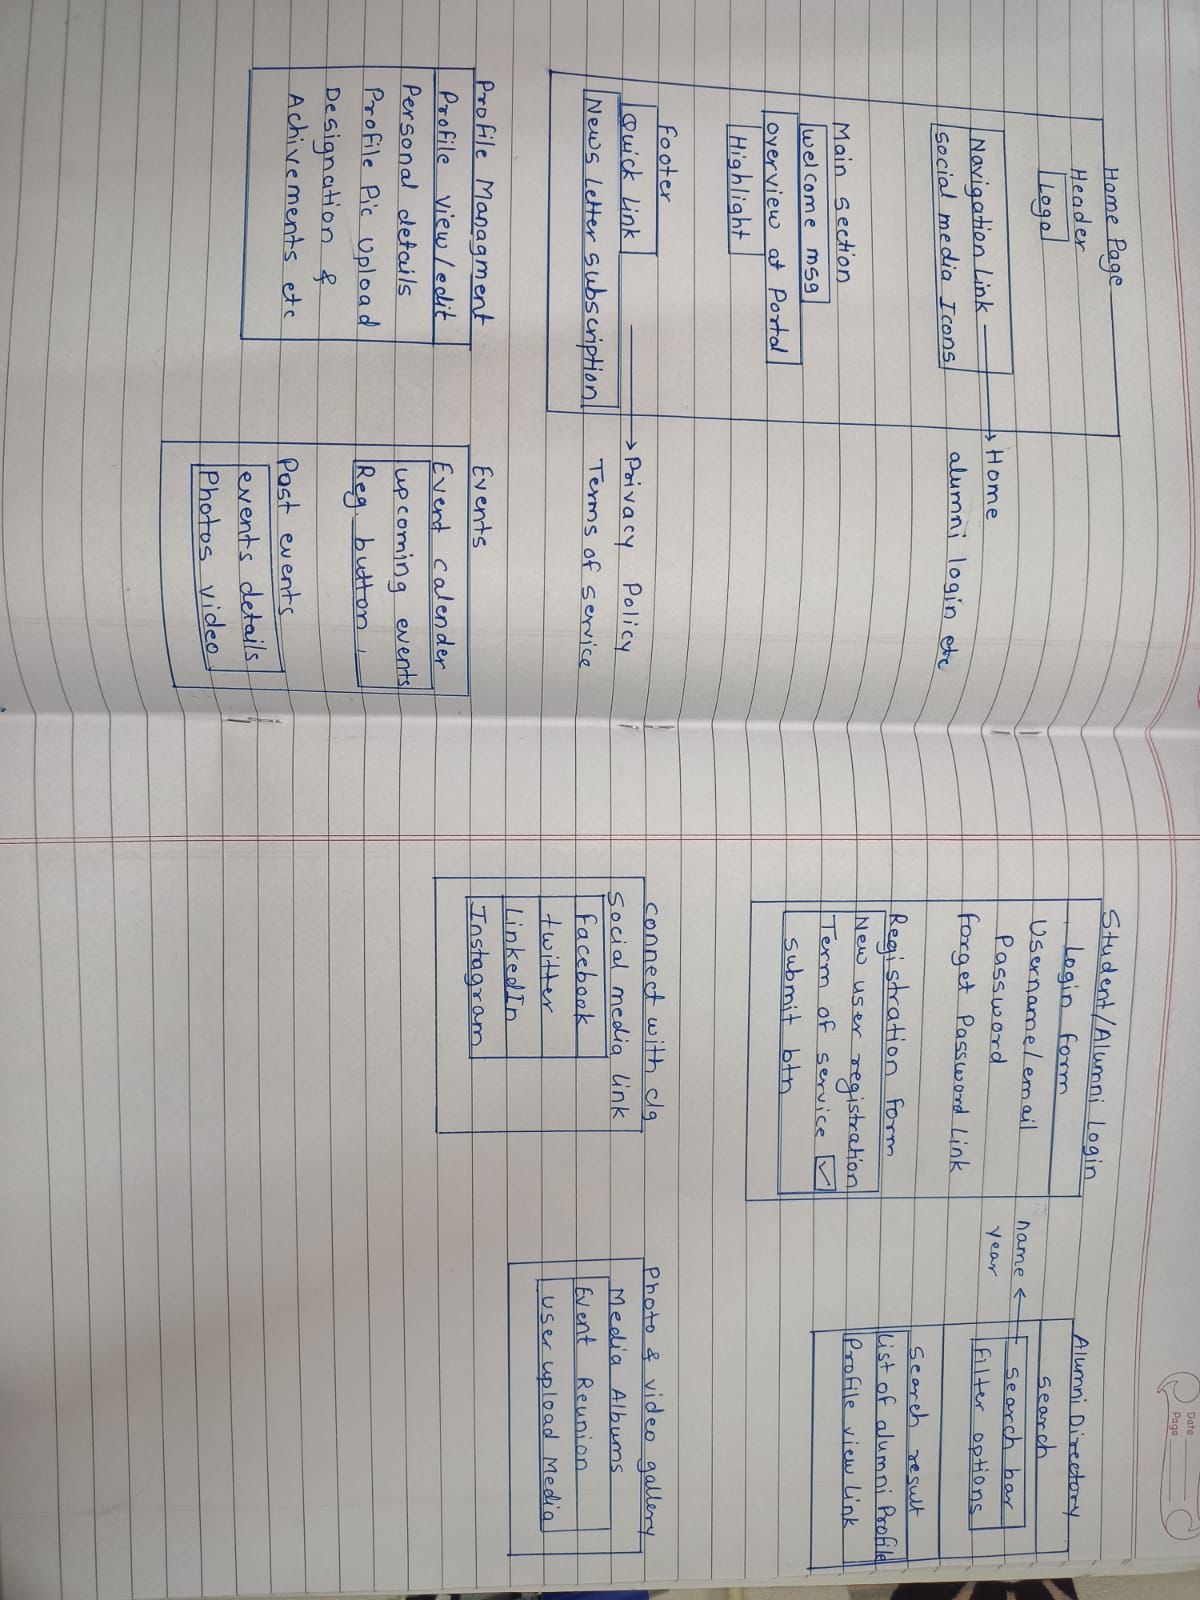 Date
Page
Home Page
Header
Logo
Navigation Link → Home
social media Icons alumni login etc
Main section
welcome msg
overview at Portal
Highlight
Footer
Quick Link → Privacy Policy
News Letter subscription Terms of service
Profile Managment
Profile view/edit
Personal details
Profile Pic Upload
Designation &
Achivements etc
Events
Event calender
upcoming events
Reg. button
Past events
events details
Photos video
Student/Alumni Login
Login form
Username/email
Password
forget Password Link
Registration form
New user registration
Term of service ✓
submit btn
Alumni Directory
search
name ← search bar
year filter options
search result
List of alumni Profile
Profile view link
connect with clg
social media link
facebook
twitter
LinkedIn
Instagram
Photo & video gallery
Media Albums
Event Reunion
user upload Media